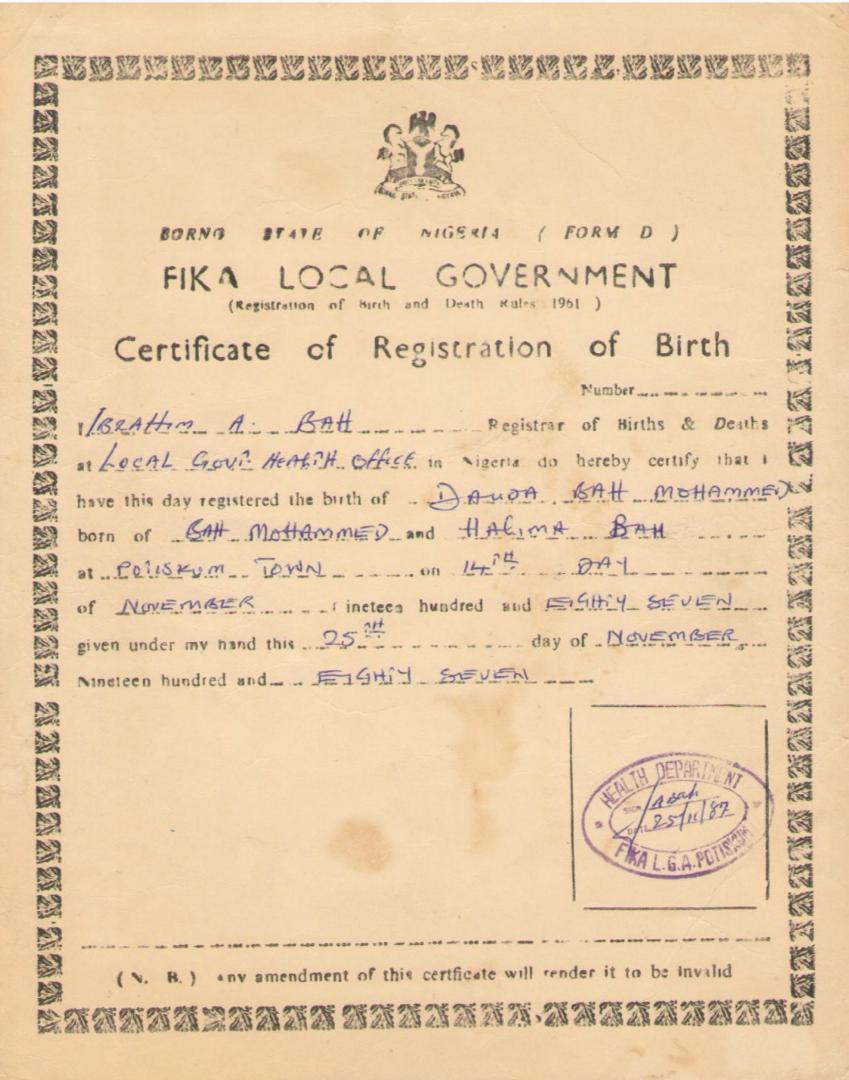 BORNO STATE OF NIGERIA ( FORM D )
FIKA LOCAL GOVERNMENT
(Registration of Birth and Death Rules 1961 )
Certificate of Registration of Birth
Number
I IBRAHIM A. BAH Registrar of Births & Deaths
at LOCAL GOVT. HEALTH OFFICE in Nigeria do hereby certify that I
have this day registered the birth of DAUDA BAH MOHAMMED
born of BAH MOHAMMED and HALIMA BAH
at POTISKUM TOWN on 14TH DAY
of NOVEMBER Nineteen hundred and EIGHTY SEVEN
given under my hand this 25TH day of NOVEMBER
Nineteen hundred and EIGHTY SEVEN
HEALTH DEPARTMENT
SIGN ABah
DATE 25/11/87
FIKA L.G.A. POTISKUM
( N. B. ) any amendment of this certficate will render it to be invalid